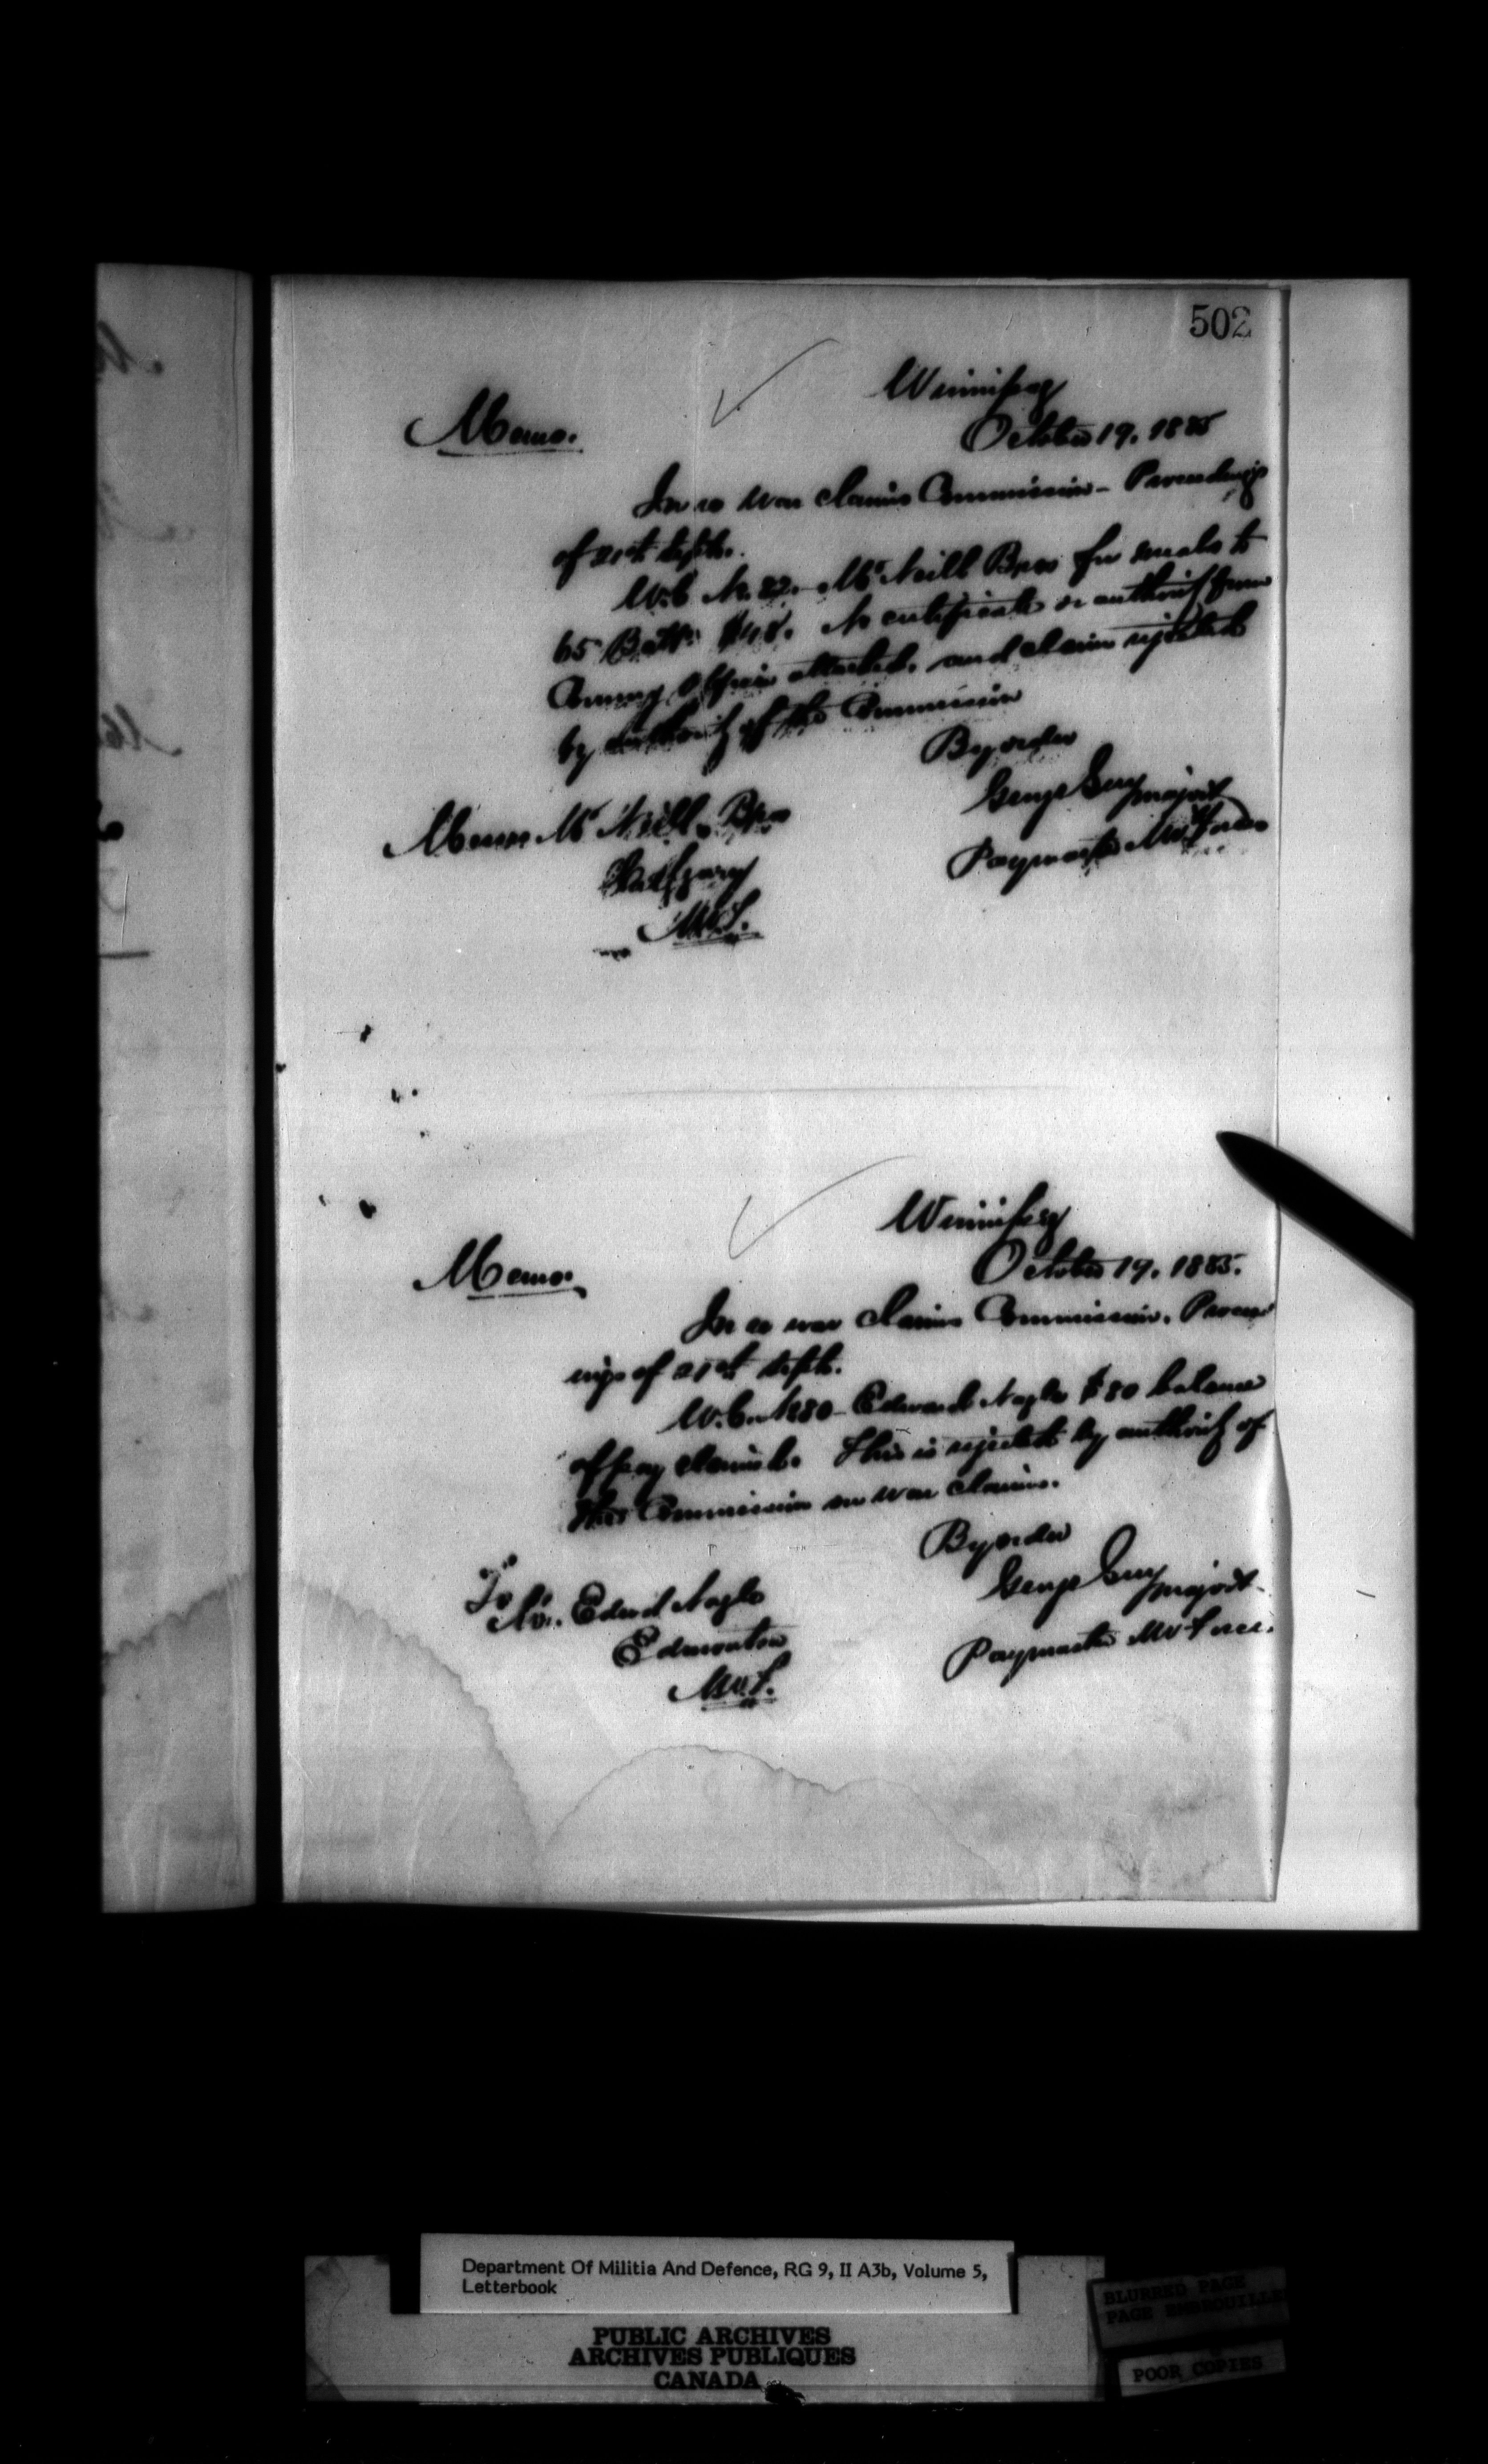 502
Winnipeg
October 19. 1885
Memo.
In re War Claims Commission - Proceedings
of 21st Septr.
W.C. No. 82. McNeill Bros for meals to
65 Battn. $48. No certificate or authority from
Commg Officer attached. and claim rejected
by authority of the Commission
By order
George Guy Major
Paymaster NW Forces
Messrs McNeill Bros
Calgary
N.W.T.
Winnipeg
October 19. 1885.
Memo.
In re War Claims Commission. Proceed
ings of 21st Septr.
W.C. No 80 - Edward Nagle $80 balance
of pay claimed. This is rejected by authority of
the Commission on War Claims.
By order
George Guy Major
Paymaster NW Forces.
To
Mr. Edwd Nagle
Edmonton
N.W.T.
Department Of Militia And Defence, RG 9, II A3b, Volume 5,
Letterbook
PUBLIC ARCHIVES
ARCHIVES PUBLIQUES
CANADA
BLURRED PAGE
PAGE EMBROUILLEE
POOR COPIES